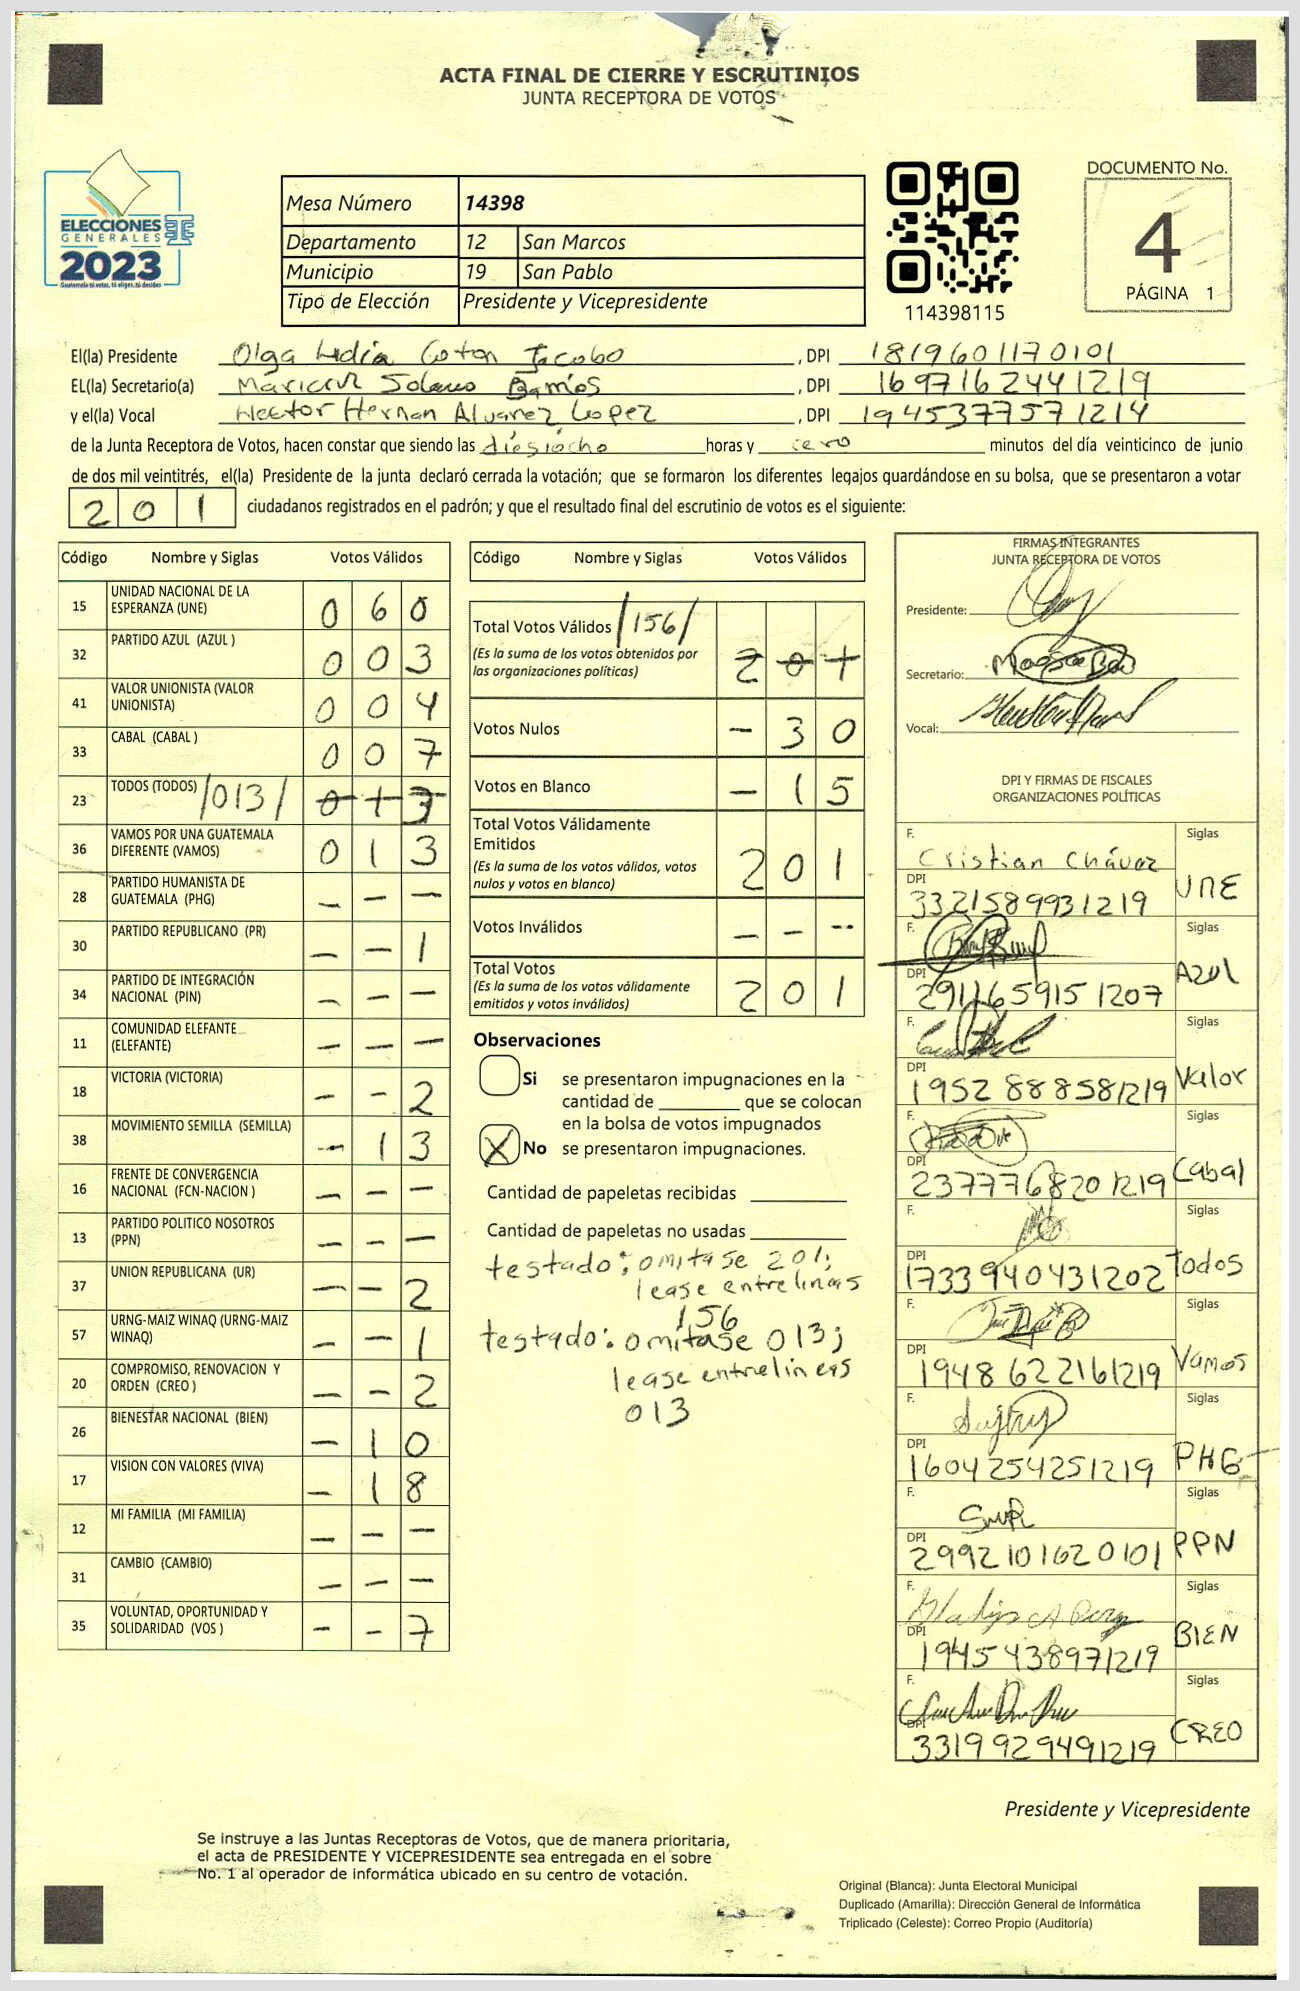 ACTA FINAL DE CIERRE Y ESCRUTINIOS
JUNTA RECEPTORA DE VOTOS
ELECCIONES
GENERALES
2023
Guatemala tú votas, tú eliges, tú decides
Mesa Número 14398
Departamento 12 San Marcos
Municipio 19 San Pablo
Tipo de Elección Presidente y Vicepresidente
114398115
DOCUMENTO No.
4
PÁGINA 1
El(la) Presidente Olga Lidia Coton Jacobo, DPI 1819601170101
EL(la) Secretario(a) Solano Barrios, DPI 1697162441219
y el(la) Vocal Hector Hernan Alvarez Lopez, DPI 1945377571214
de la Junta Receptora de Votos, hacen constar que siendo las diesiocho horas y cero minutos del día veinticinco de junio
de dos mil veintitrés, el(la) Presidente de la junta declaró cerrada la votación; que se formaron los diferentes legajos guardándose en su bolsa, que se presentaron a votar
201 ciudadanos registrados en el padrón; y que el resultado final del escrutinio de votos es el siguiente:
Código Nombre y Siglas Votos Válidos
15 UNIDAD NACIONAL DE LA ESPERANZA (UNE) 0 6 0
32 PARTIDO AZUL (AZUL ) 0 0 3
41 VALOR UNIONISTA (VALOR UNIONISTA) 0 0 4
33 CABAL (CABAL ) 0 0 7
23 TODOS (TODOS) /013/ 0 1 3
36 VAMOS POR UNA GUATEMALA DIFERENTE (VAMOS) 0 1 3
28 PARTIDO HUMANISTA DE GUATEMALA (PHG) - - -
30 PARTIDO REPUBLICANO (PR) - - 1
34 PARTIDO DE INTEGRACIÓN NACIONAL (PIN) - - -
11 COMUNIDAD ELEFANTE (ELEFANTE) - - -
18 VICTORIA (VICTORIA) - - 2
38 MOVIMIENTO SEMILLA (SEMILLA) - 1 3
16 FRENTE DE CONVERGENCIA NACIONAL (FCN-NACION ) - - -
13 PARTIDO POLITICO NOSOTROS (PPN) - - -
37 UNION REPUBLICANA (UR) - - 2
57 URNG-MAIZ WINAQ (URNG-MAIZ WINAQ) - - 1
20 COMPROMISO, RENOVACION Y ORDEN (CREO ) - - 2
26 BIENESTAR NACIONAL (BIEN) - 1 0
17 VISION CON VALORES (VIVA) - 1 8
12 MI FAMILIA (MI FAMILIA) - - -
31 CAMBIO (CAMBIO) - - -
35 VOLUNTAD, OPORTUNIDAD Y SOLIDARIDAD (VOS ) - - 7
Código Nombre y Siglas Votos Válidos
Total Votos Válidos /156/ 2 0 1
(Es la suma de los votos obtenidos por
las organizaciones políticas)
Votos Nulos - 3 0
Votos en Blanco - 1 5
Total Votos Válidamente
Emitidos 2 0 1
(Es la suma de los votos válidos, votos
nulos y votos en blanco)
Votos Inválidos - - --
Total Votos 2 0 1
(Es la suma de los votos válidamente
emitidos y votos inválidos)
Observaciones
Si se presentaron impugnaciones en la
cantidad de ________ que se colocan
en la bolsa de votos impugnados
X No se presentaron impugnaciones.
Cantidad de papeletas recibidas
Cantidad de papeletas no usadas
testado: omitase 201;
lease entrelineas
156
testado: omitase 013;
lease entrelineas
013
FIRMAS INTEGRANTES
JUNTA RECEPTORA DE VOTOS
Presidente:
Secretario:
Vocal:
DPI Y FIRMAS DE FISCALES
ORGANIZACIONES POLÍTICAS
F. Cristian Chávez Siglas
DPI 3321589931219 UNE
F. Siglas
DPI 2911659151207 AZUL
F. Siglas
DPI 1952888581219 Valor
F. Siglas
DPI 2377768201219 Cabal
F. Siglas
DPI 1733940431202 Todos
F. Siglas
DPI 1948622161219 Vamos
F. Siglas
DPI 1604254251219 PHG
F. Siglas
DPI 2992101620101 PPN
F. Siglas
DPI 1945438971219 BIEN
F. Siglas
DPI 3319929491219 CREO
Presidente y Vicepresidente
Se instruye a las Juntas Receptoras de Votos, que de manera prioritaria,
el acta de PRESIDENTE Y VICEPRESIDENTE sea entregada en el sobre
No. 1 al operador de informática ubicado en su centro de votación.
Original (Blanca): Junta Electoral Municipal
Duplicado (Amarilla): Dirección General de Informática
Triplicado (Celeste): Correo Propio (Auditoría)